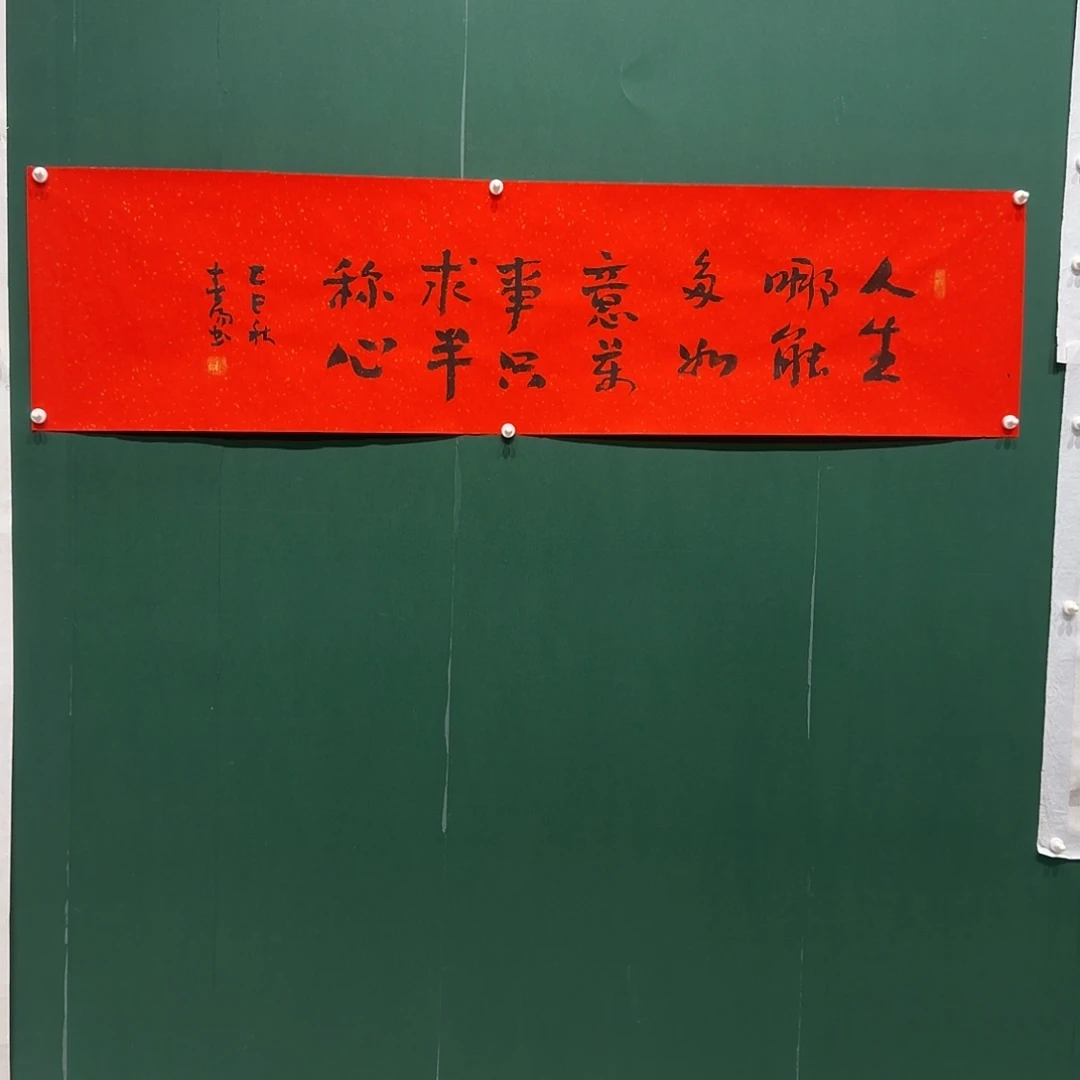 人生
哪能
多如
意万
事只
求半
称心
乙巳秋
书